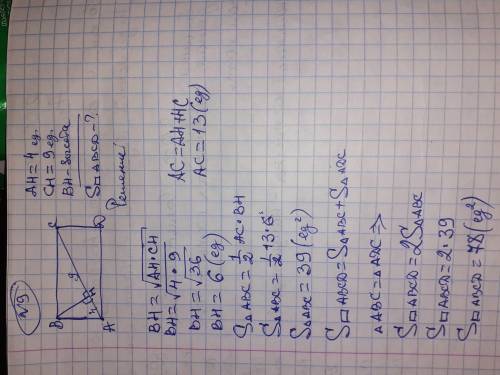 №9
B C
9
4 H
A D
AH = 4 ед.
CH = 9 ед.
BH = высота
S□ABCD = ?
Решение:
BH = √AH · CH
BH = √4 · 9
BH = √36
BH = 6 (ед)
AC = AH + HC
AC = 13 (ед)
S△ABC = 1/2 AC · BH
S△ABC = 1/2 13 · 6
S△ABC = 39 (ед²)
S□ABCD = S△ABC + S△ADC
△ABC = △ADC =>
S□ABCD = 2S△ABC
S□ABCD = 2 · 39
S□ABCD = 78 (ед²)